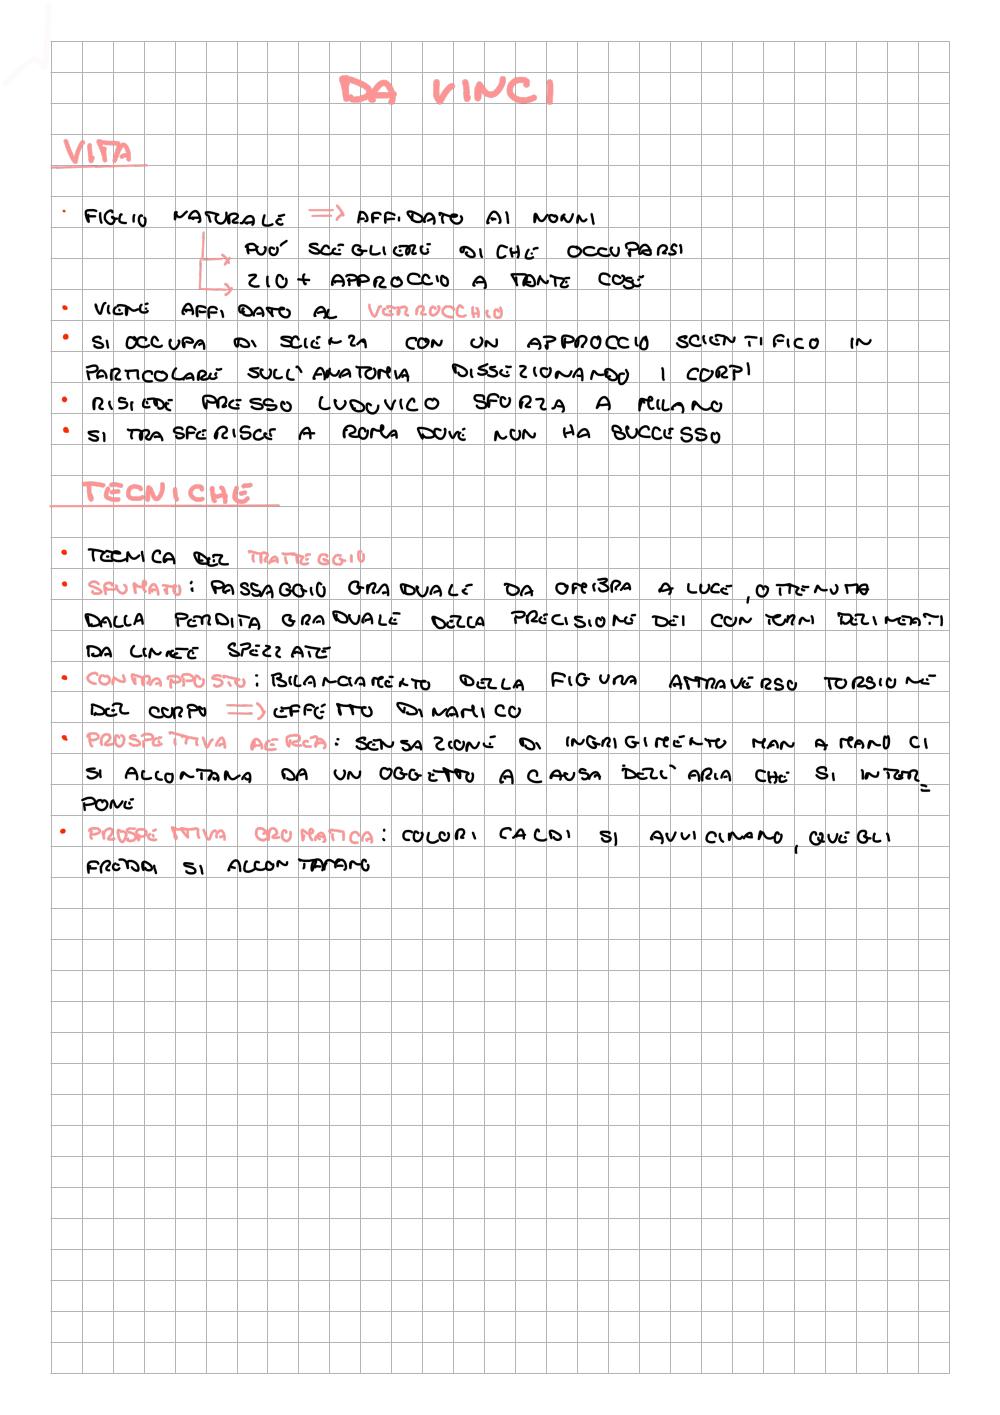 DA VINCI
VITA
• FIGLIO NATURALE => AFFIDATO AI NONNI
PUO' SCEGLIERE DI CHE OCCUPARSI
ZIO + APPROCCIO A TANTE COSE
• VIENE AFFIDATO AL VERROCCHIO
• SI OCCUPA DI SCIENZA CON UN APPROCCIO SCIENTIFICO IN
PARTICOLARE SULL'ANATOMIA DISSEZIONANDO I CORPI
• RISIEDE PRESSO LUDOVICO SFORZA A MILANO
• SI TRASFERISCE A ROMA DOVE NON HA SUCCESSO
TECNICHE
• TECNICA DEL TRATTEGGIO
• SFUMATO: PASSAGGIO GRADUALE DA OMBRA A LUCE, OTTENUTA
DALLA PERDITA GRADUALE DELLA PRECISIONE DEI CONTORNI DELINEATI
DA LINEE SPEZZATE
• CONTRAPPOSTO: BILANCIAMENTO DELLA FIGURA ATTRAVERSO TORSIONE
DEL CORPO => EFFETTO DINAMICO
• PROSPETTIVA AEREA: SENSAZIONE DI INGRIGIMENTO MAN A MANO CI
SI ALLONTANA DA UN OGGETTO A CAUSA DELL'ARIA CHE SI INTER=
PONE
• PROSPETTIVA CROMATICA: COLORI CALDI SI AVVICINANO, QUEGLI
FREDDI SI ALLONTANANO